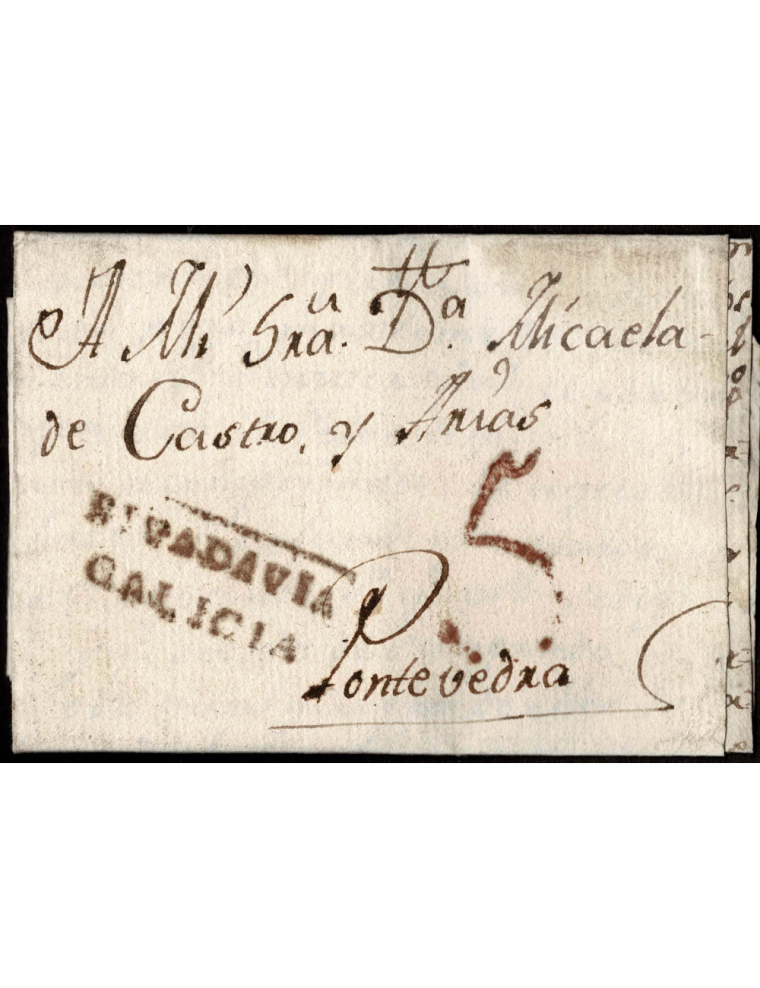 A Mi Sra. Da. Micaela
de Castro, y Arias
5
RIVADAVIA
GALICIA
Pontevedra